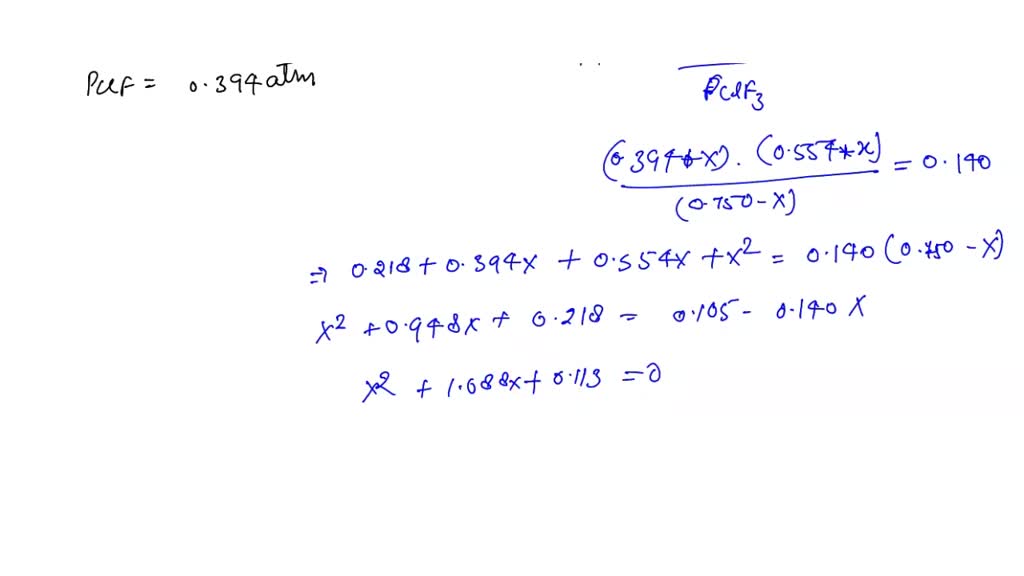 PClF = 0.394 atm
PClF3
(0.394+x). (0.554+x) = 0.140
(0.750-x)
⇒ 0.218 + 0.394x + 0.554x + x² = 0.140 (0.750 - x)
x² + 0.948x + 0.218 = 0.105 - 0.140 x
x² + 1.088x + 0.113 = 0